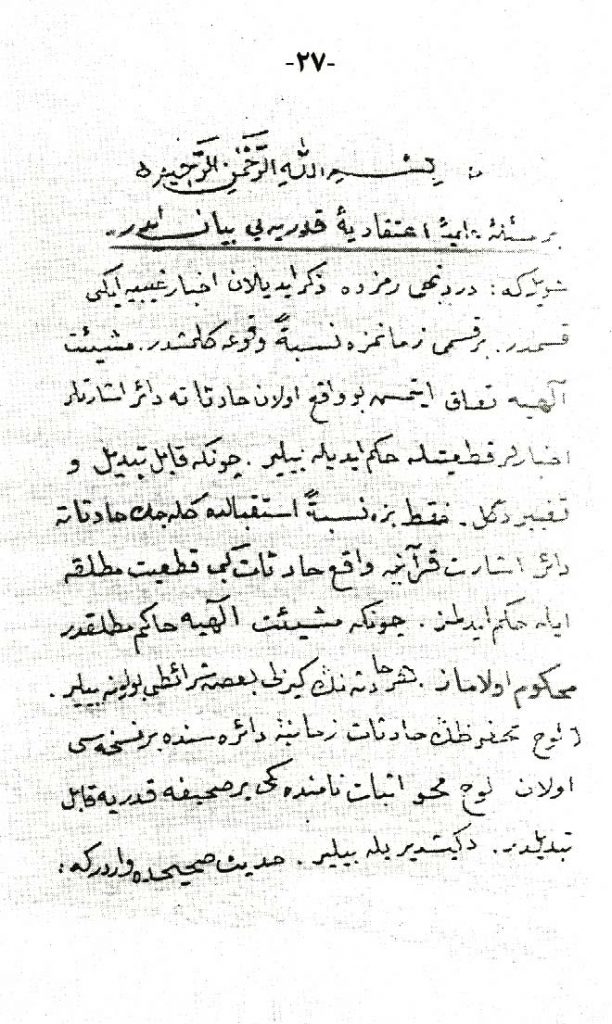 -٢٧-
بِسْمِ اللّٰهِ الرَّحْمٰنِ الرَّحِيمِ
بر مسئلهٔ مهمهٔ اعتقاديهٔ قدريه يى بيان ايدر.
شويله كه: دردنجى رمزده ذكر ايديلان اخبار غيبيه ايكى
قسمدر. بر قسمى زمانمزه نسبةً وقوعه كلمشدر. مشيئت
آلهيه تعلق ايتمش بو واقع اولان حادثاته دائر اشارتلر
اخبارلر قطعيتله حكم ايديله بيلير. چونكه قابل تبديل و
تغيير دگل. فقط بزه نسبةً استقبالده كله جك حادثاته
دائر اشارت قرآنيه واقع حادثات كبى قطعيت مطلقه
ايله حكم ايدلمز. چونكه مشيئت آلهيه حاكم مطلقدر
محكوم اولاماز. هر حادثه نك كيزلى بعض شرائطى بولونه بيلير.
لوح محفوظك حادثات زمانيه دائره سنده بر نسخه سى
اولان لوح محو اثبات نامنده كى بر صحيفه قدريه قابل
تبديلدر. دكيشديريله بيلير. حديث صحيحده واردر كه: